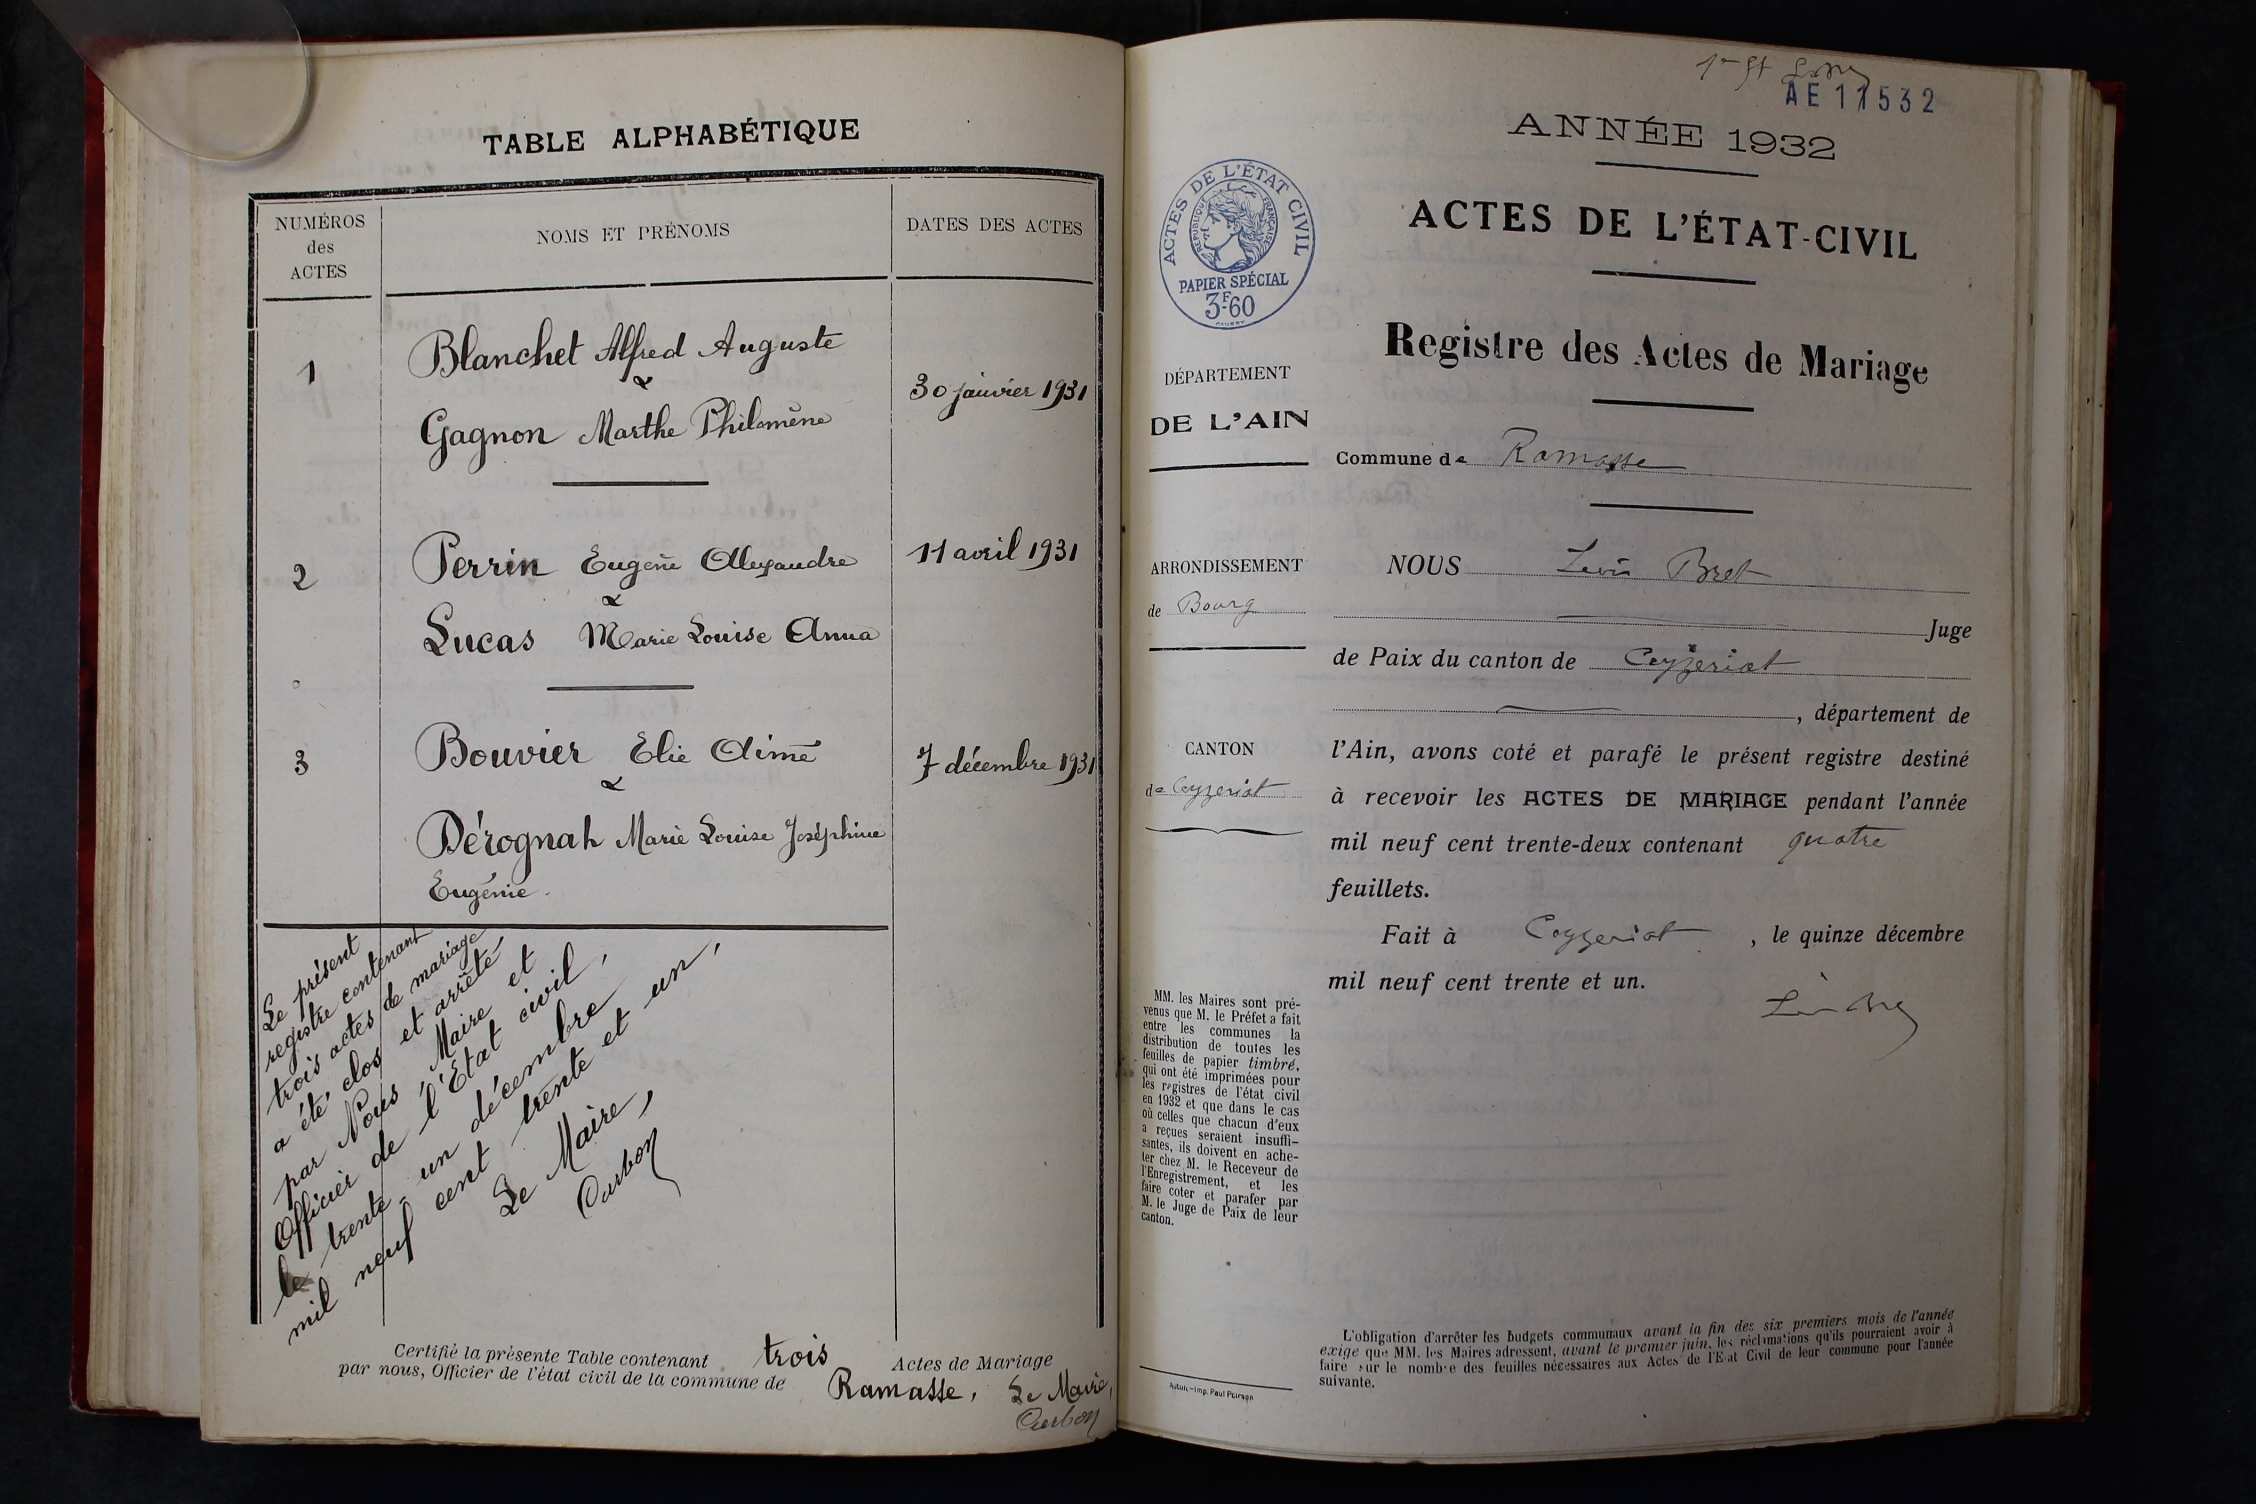 TABLE ALPHABÉTIQUE
NUMÉROS
des
ACTES
NOMS ET PRÉNOMS
DATES DES ACTES
1
Blanchet Alfred Auguste
&
Gagnon Marthe Philomène
30 janvier 1931
2
Perrin Eugène Alexandre
&
Lucas Marie Louise Anna
11 avril 1931
3
Bouvier Elie Aimé
&
Dérognah Marie Louise Joséphine
Eugénie
7 décembre 1931
Le présent
registre contenant
trois actes de mariage
a été clos et arrêté
par Nous, Maire et
Officier de l'Etat civil,
le trente-un décembre
mil neuf cent trente et un,
Le Maire,
Curbon
Certifié la présente Table contenant trois Actes de Mariage
par nous, Officier de l'état civil de la commune de Ramasse, Le Maire,
Curbon
AE 11532
ANNÉE 1932
ACTES DE L'ÉTAT-CIVIL
Registre des Actes de Mariage
ACTES DE L'ÉTAT CIVIL
RÉPUBLIQUE FRANÇAISE
PAPIER SPÉCIAL
3F60
DÉPARTEMENT
DE L'AIN
Commune de Ramasse
ARRONDISSEMENT
de Bourg
CANTON
de Ceyzeriat
NOUS Louis Bret
Juge
de Paix du canton de Ceyzeriat
, département de
l'Ain, avons coté et parafé le présent registre destiné
à recevoir les ACTES DE MARIAGE pendant l'année
mil neuf cent trente-deux contenant quatre
feuillets.
Fait à Ceyzeriat, le quinze décembre
mil neuf cent trente et un.
MM. les Maires sont pré-
venus que M. le Préfet a fait
entre les communes la
distribution de toutes les
feuilles de papier timbré,
qui ont été imprimées pour
les registres de l'état civil
en 1932 et que dans le cas
où celles que chacun d'eux
a reçues seraient insuffi-
santes, ils doivent en ache-
ter chez M. le Receveur de
l'Enregistrement, et les
faire coter et parafer par
M. le Juge de Paix de leur
canton.
Autun.-Imp. Paul Poirson
L'obligation d'arrêter les budgets communaux avant la fin des six premiers mois de l'année
exige que MM. les Maires adressent, avant le premier juin, les réclamations qu'ils pourraient avoir à
faire sur le nombre des feuilles nécessaires aux Actes de l'Etat Civil de leur commune pour l'année
suivante.